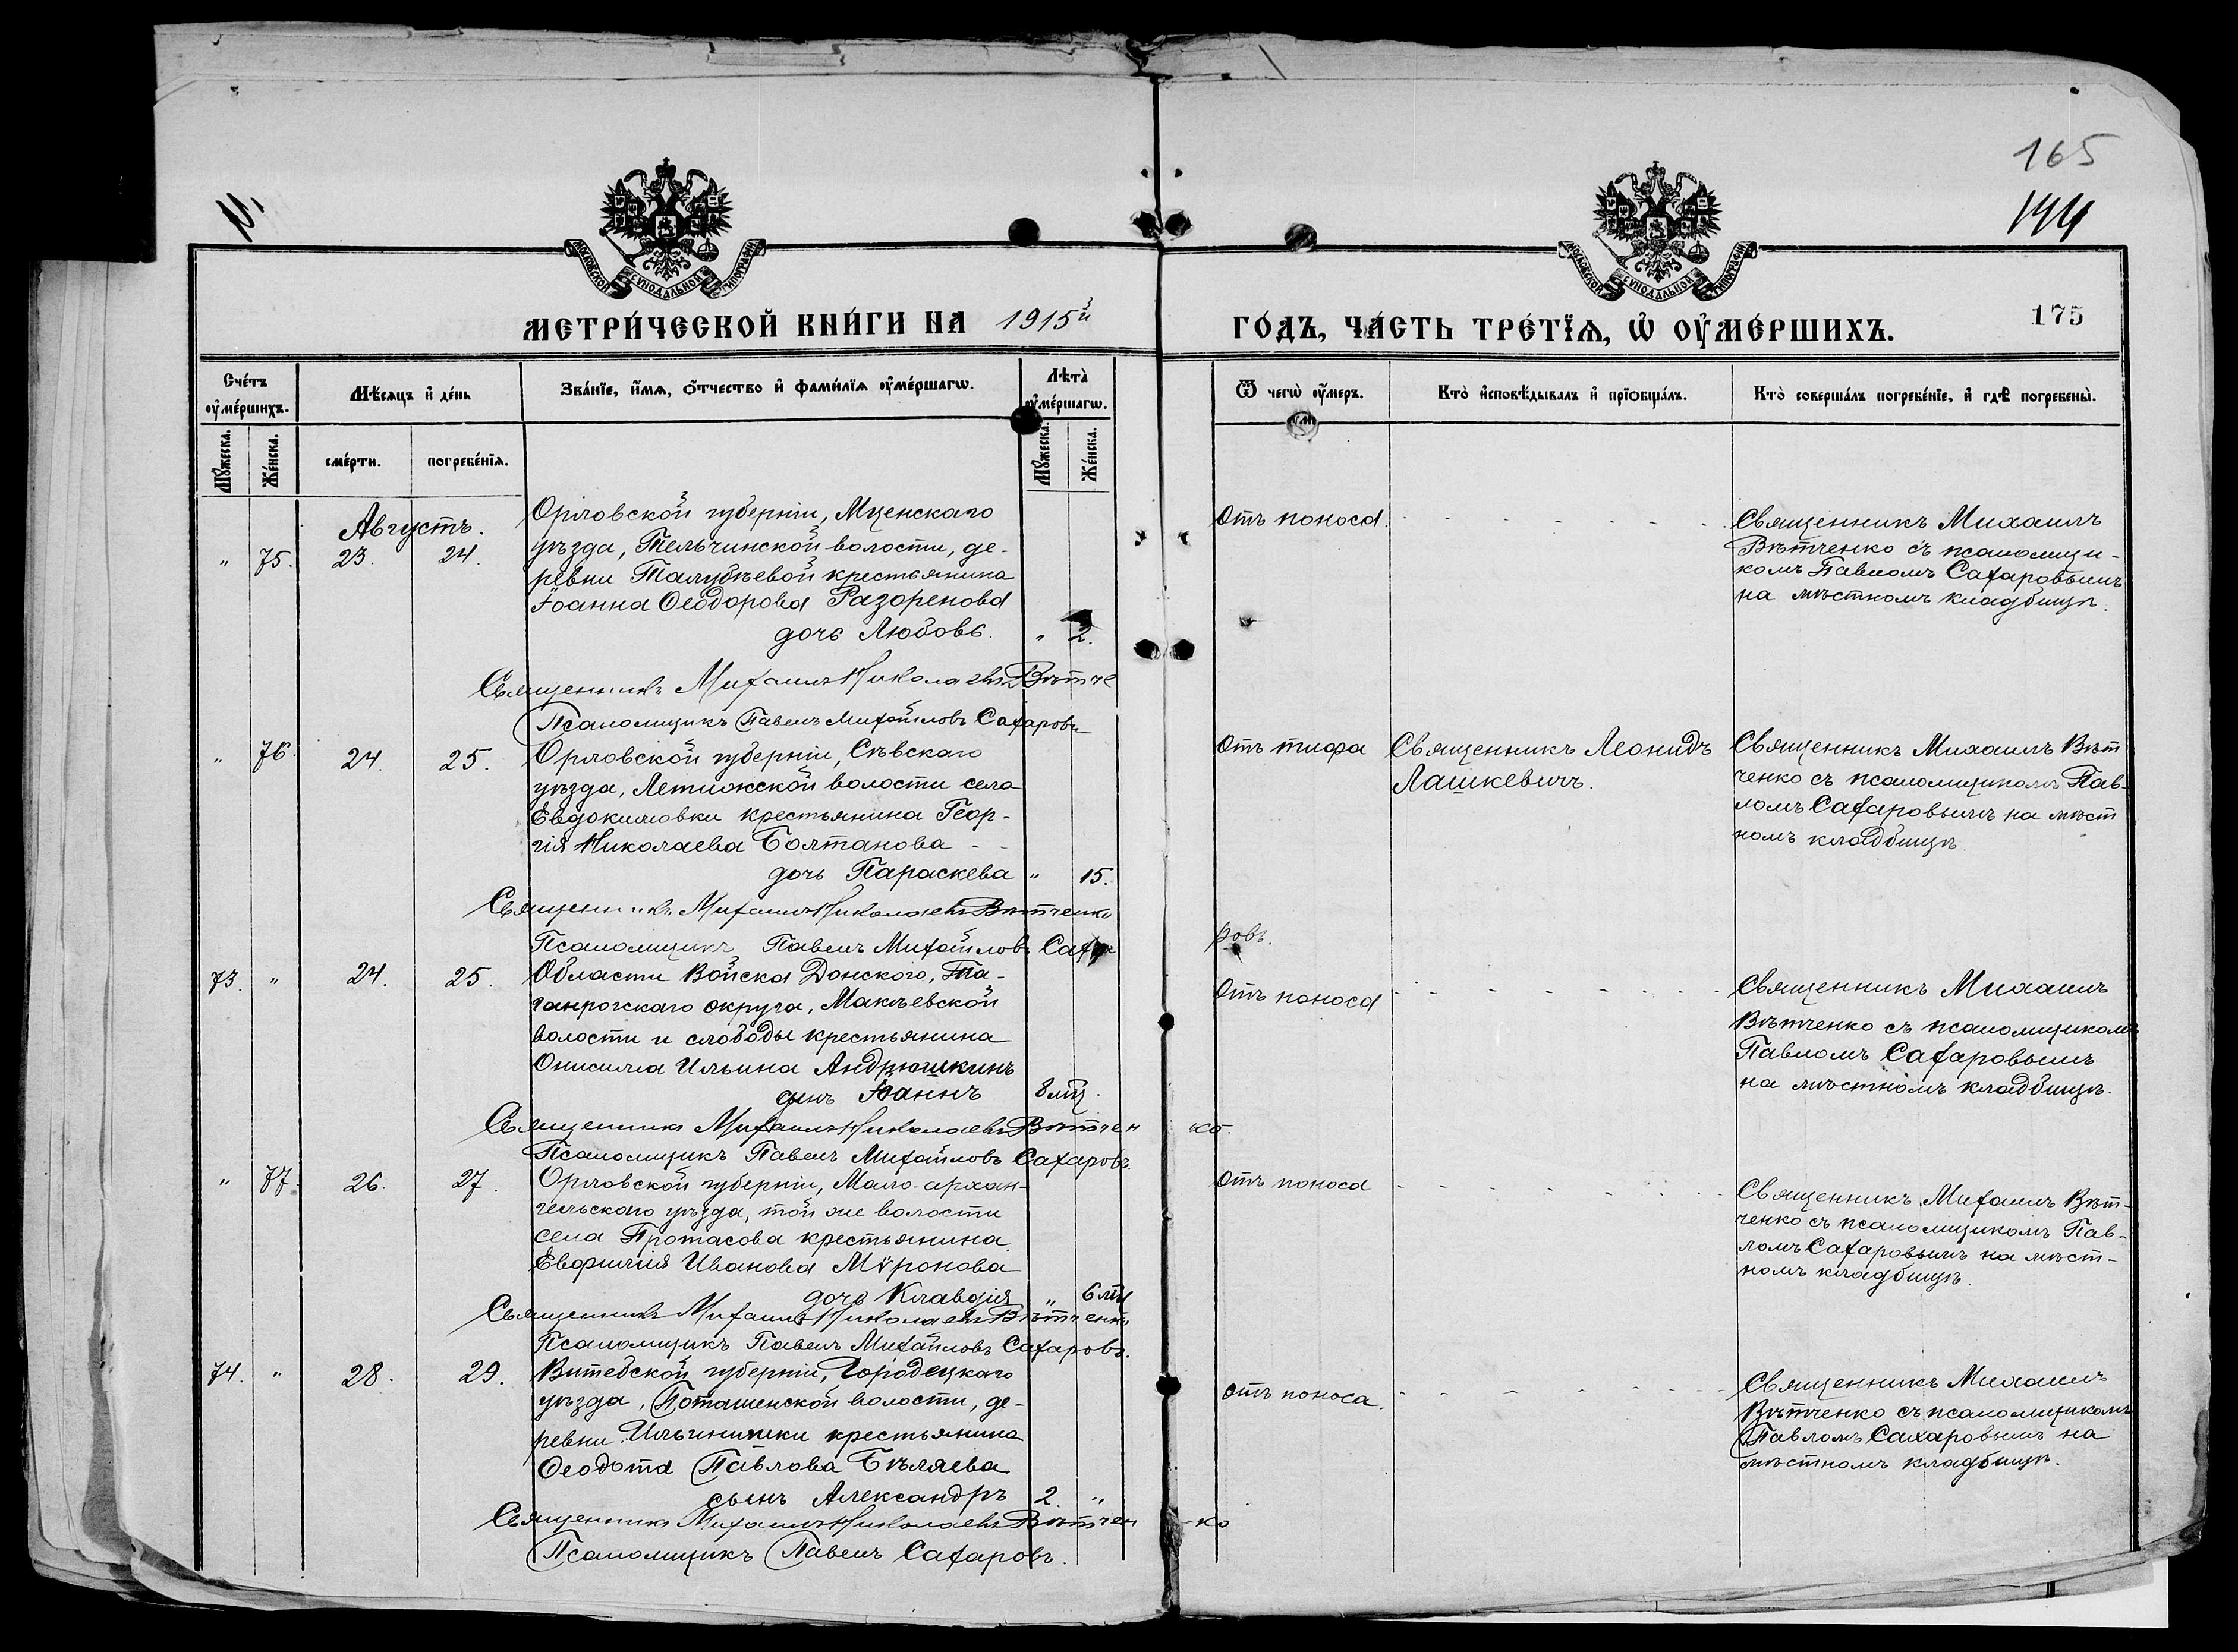 165
144
МОСКОВСКОЙ СѴНОДАЛЬНОЙ ТИПОГРАФІИ
МОСКОВСКОЙ СѴНОДАЛЬНОЙ ТИПОГРАФІИ
МЕТРИ́ЧЕСКОЙ КНИ́ГИ НА 1915й
ГО́ДЪ, ЧА́СТЬ ТРЕ́ТЇѦ, Ѡ҆ ОУ҆МЕ́РШИХЪ.
175
Сче́тъ оу҆ме́ршихъ.
Мѣ́сѧцъ и҆ де́нь
Зва́нїе, и҆́мѧ, ѻ҆́тчество и҆ фами́лїѧ оу҆ме́ршагѡ.
Лѣ́та оу҆ме́ршагѡ.
Ѿ чегѡ̀ оу҆́меръ.
Кто̀ и҆сповѣ́дывалъ и҆ прїѡбща́лъ.
Кто̀ соверша́лъ погребе́нїе, и҆ гдѣ̀ погребены̀.
Мꙋ́жеска.
Же́нска.
сме́рти.
погребе́нїѧ.
Мꙋ́жеска.
Же́нска.
Августъ.
" 75. 23. 24.
Орловской губерніи, Мценскаго
уѣзда, Тельчинской волости, де-
ревни Талубѣевой крестьянина
Іоанна Ѳеодорова Разоренова
дочь Любовь. " 2.
Отъ поноса.
Священникъ Михаилъ
Вѣтченко съ псаломщи-
комъ Павломъ Сахаровымъ
на мѣстномъ кладбищѣ.
Священникъ Михаилъ Николаевъ Вѣтче
Псаломщикъ Павелъ Михайловъ Сахаровъ
" 76. 24. 25.
Орловской губерніи, Сѣвскаго
уѣзда, Летножской волости села
Евдокимовки крестьянина Геор-
гія Николаева Болтанова
дочь Параскева " 15.
Отъ тифа
Священникъ Леонидъ
Лашкевичъ.
Священникъ Михаилъ Вѣт
ченко съ псаломщикомъ Пав-
ломъ Сахаровымъ на мѣст
номъ кладбищѣ
Священникъ Михаилъ Николаевъ Вѣтченко
Псаломщикъ Павелъ Михайловъ Саха
ровъ.
73. " 24. 25.
Области Войска Донского, Та-
ганрогскаго округа, Макѣевской
волости и слободы крестьянина
Онисима Ильина Андрюшкинъ
сынъ Іоаннъ 8 мц.
Отъ поноса
Священникъ Михаилъ
Вѣтченко съ псаломщикомъ
Павломъ Сахаровымъ
на мѣстномъ кладбищѣ.
Священникъ Михаилъ Николаевъ Вѣтчен
ко.
Псаломщикъ Павелъ Михайловъ Сахаровъ.
" 77. 26. 27.
Орловской губерніи, Мало-архан-
гельскаго уѣзда, той же волости
села Протасова крестьянина
Евфимія Иванова Мѵронова
дочь Клавдія " 6 мц
Отъ поноса
Священникъ Михаилъ Вѣт-
ченко съ псаломщикомъ Пав-
ломъ Сахаровымъ на мѣст-
номъ кладбищѣ.
Священникъ Михаилъ Николаевъ Вѣтченко
Псаломщикъ Павелъ Михайловъ Сахаровъ.
74. " 28. 29.
Витебской губерніи, Городецкаго
уѣзда, Поташенской волости, де-
ревни Ильинишки крестьянина
Ѳеодота Павлова Бѣляева
сынъ Александръ 2. "
отъ поноса.
Священникъ Михаилъ
Вѣтченко съ псаломщикомъ
Павломъ Сахаровымъ на
мѣстномъ кладбищѣ.
Священникъ Михаилъ Николаевъ Вѣтчен
-ко
Псаломщикъ Павелъ Сахаровъ.